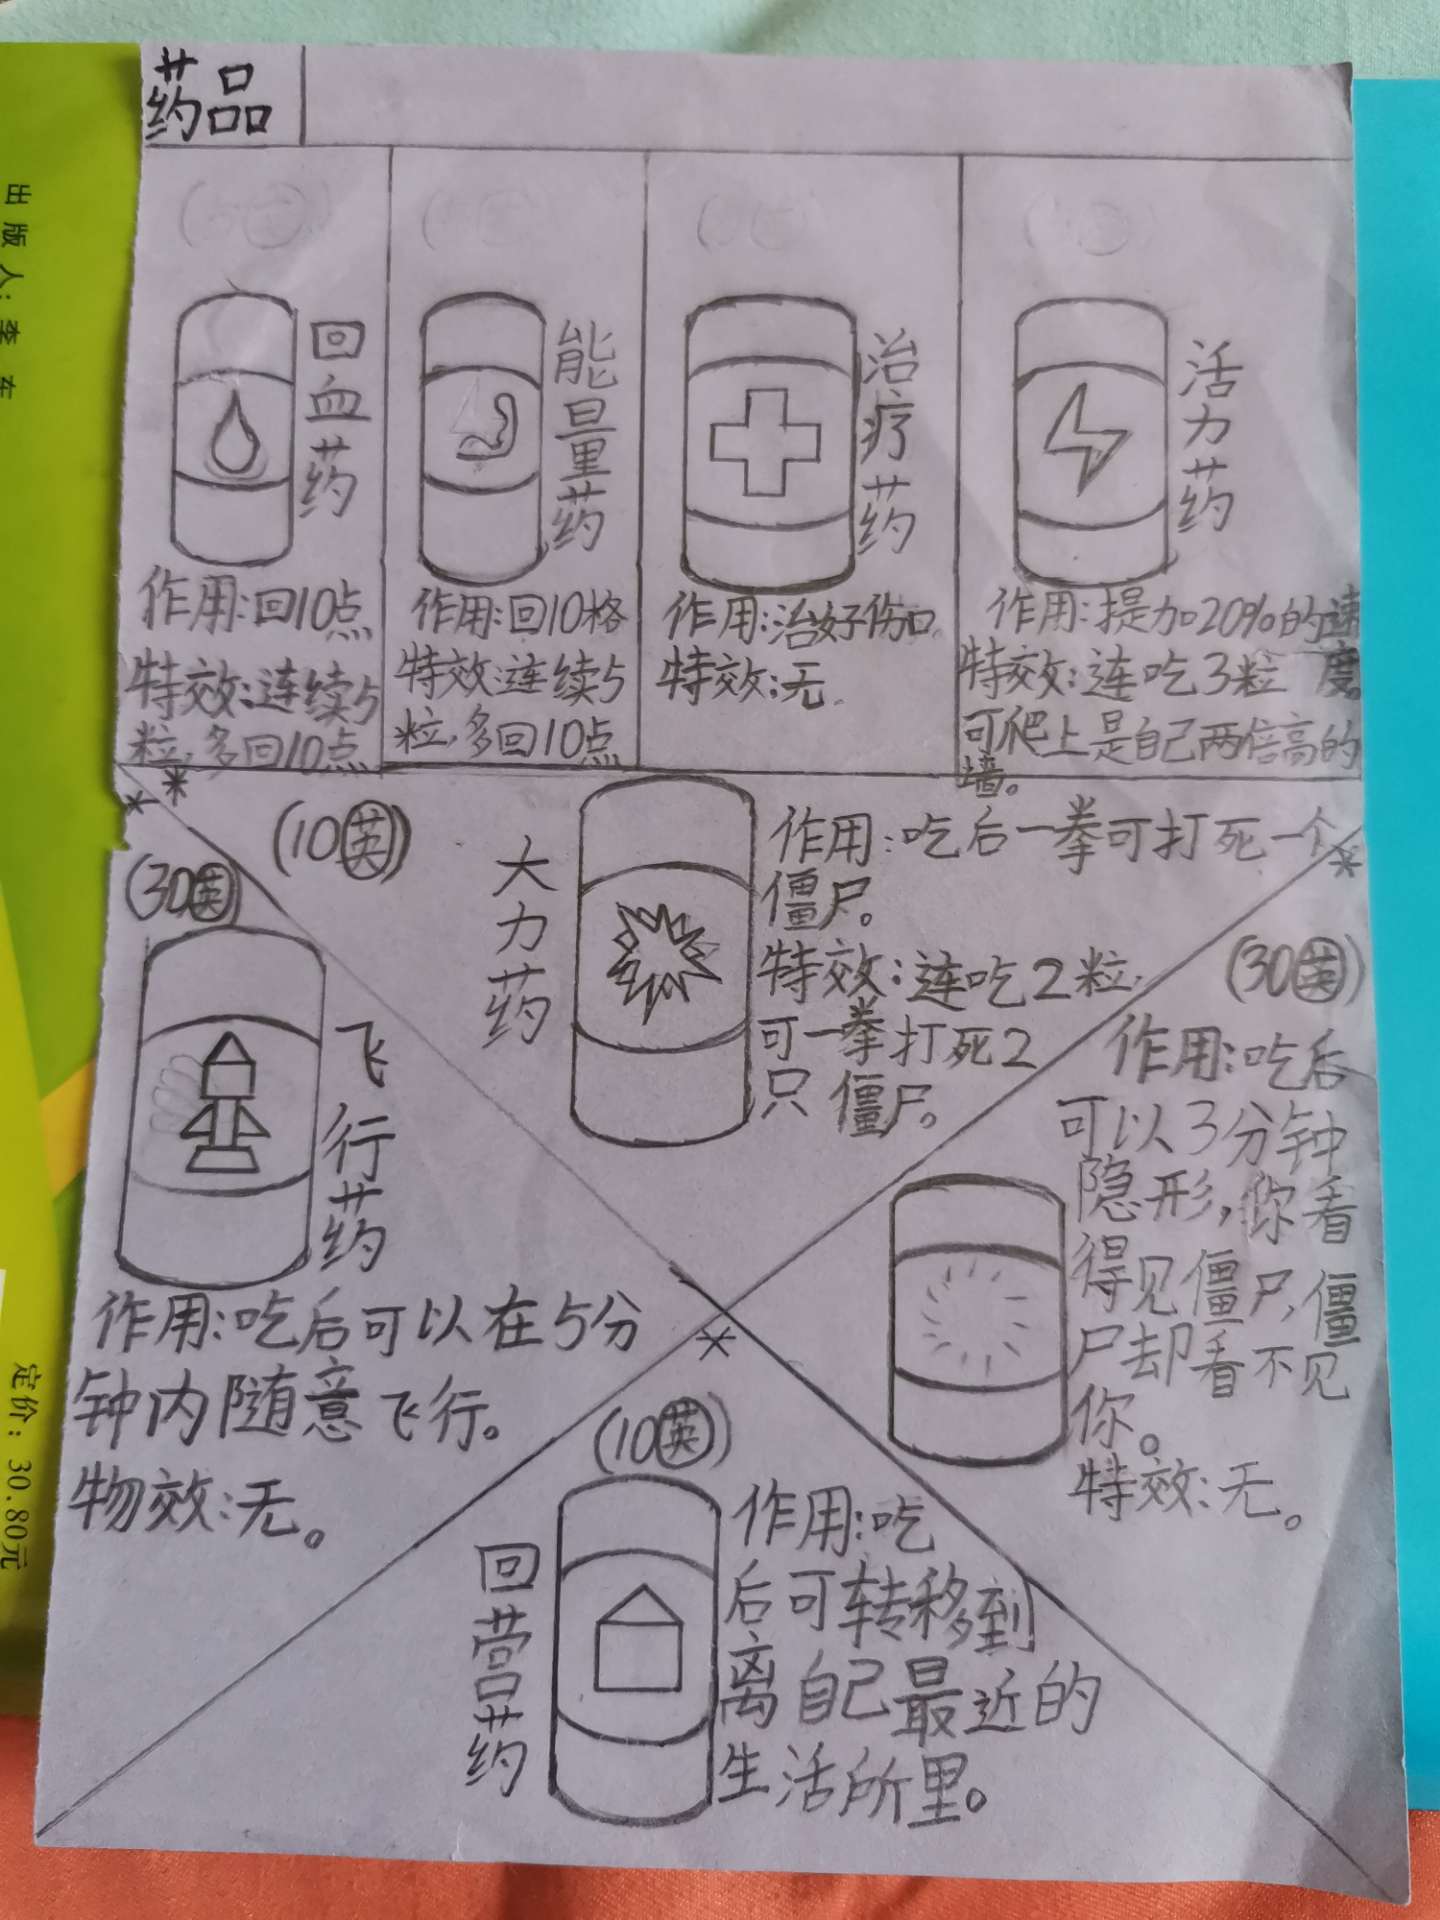 药品
回血药
作用:回10点
特效:连续5
粒,多回10点
能量药
作用:回10格
特效:连续5
粒,多回10点
治疗药
作用:治好伤口.
特效:无.
活力药
作用:提加20%的速
度。
特效:连吃3粒
可爬上是自己两倍高的
墙。
(10英)
大力药
作用:吃后一拳可打死一个
僵尸。
特效:连吃2粒,
可一拳打死2
只僵尸。
(30英)
飞行药
作用:吃后可以在5分
钟内随意飞行。
物效:无。
(30英)
作用:吃后
可以3分钟
隐形,你看
得见僵尸,僵
尸却看不见
你。
特效:无。
(10英)
回营药
作用:吃
后可转移到
离自己最近的
生活所里。
出版人:李东
定价:30.80元